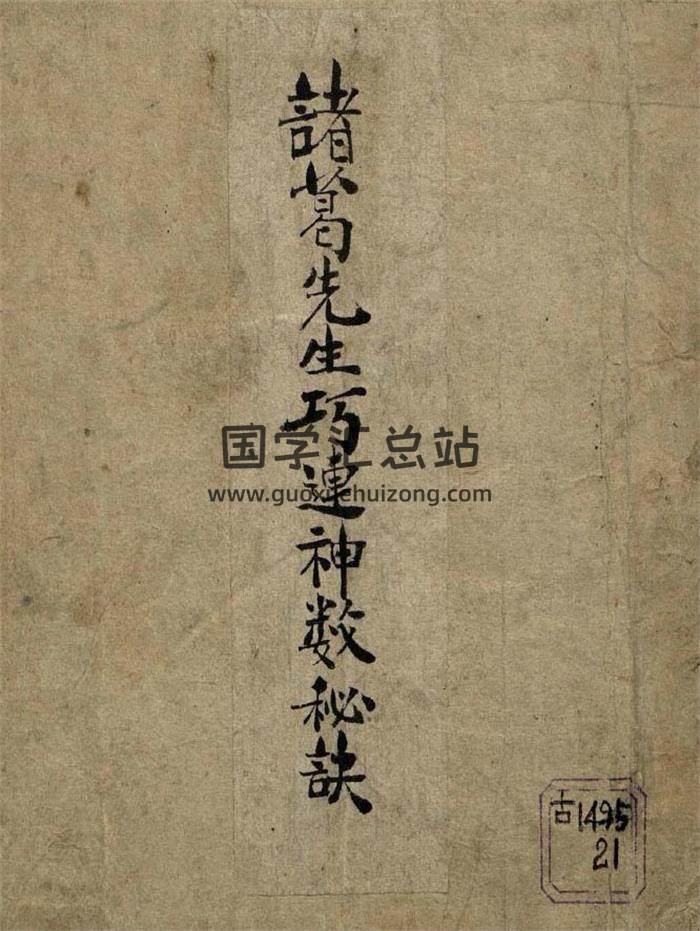 諸葛先生巧連神数秘訣
国学汇总站
www.guoxuehuizong.com
古1495
21